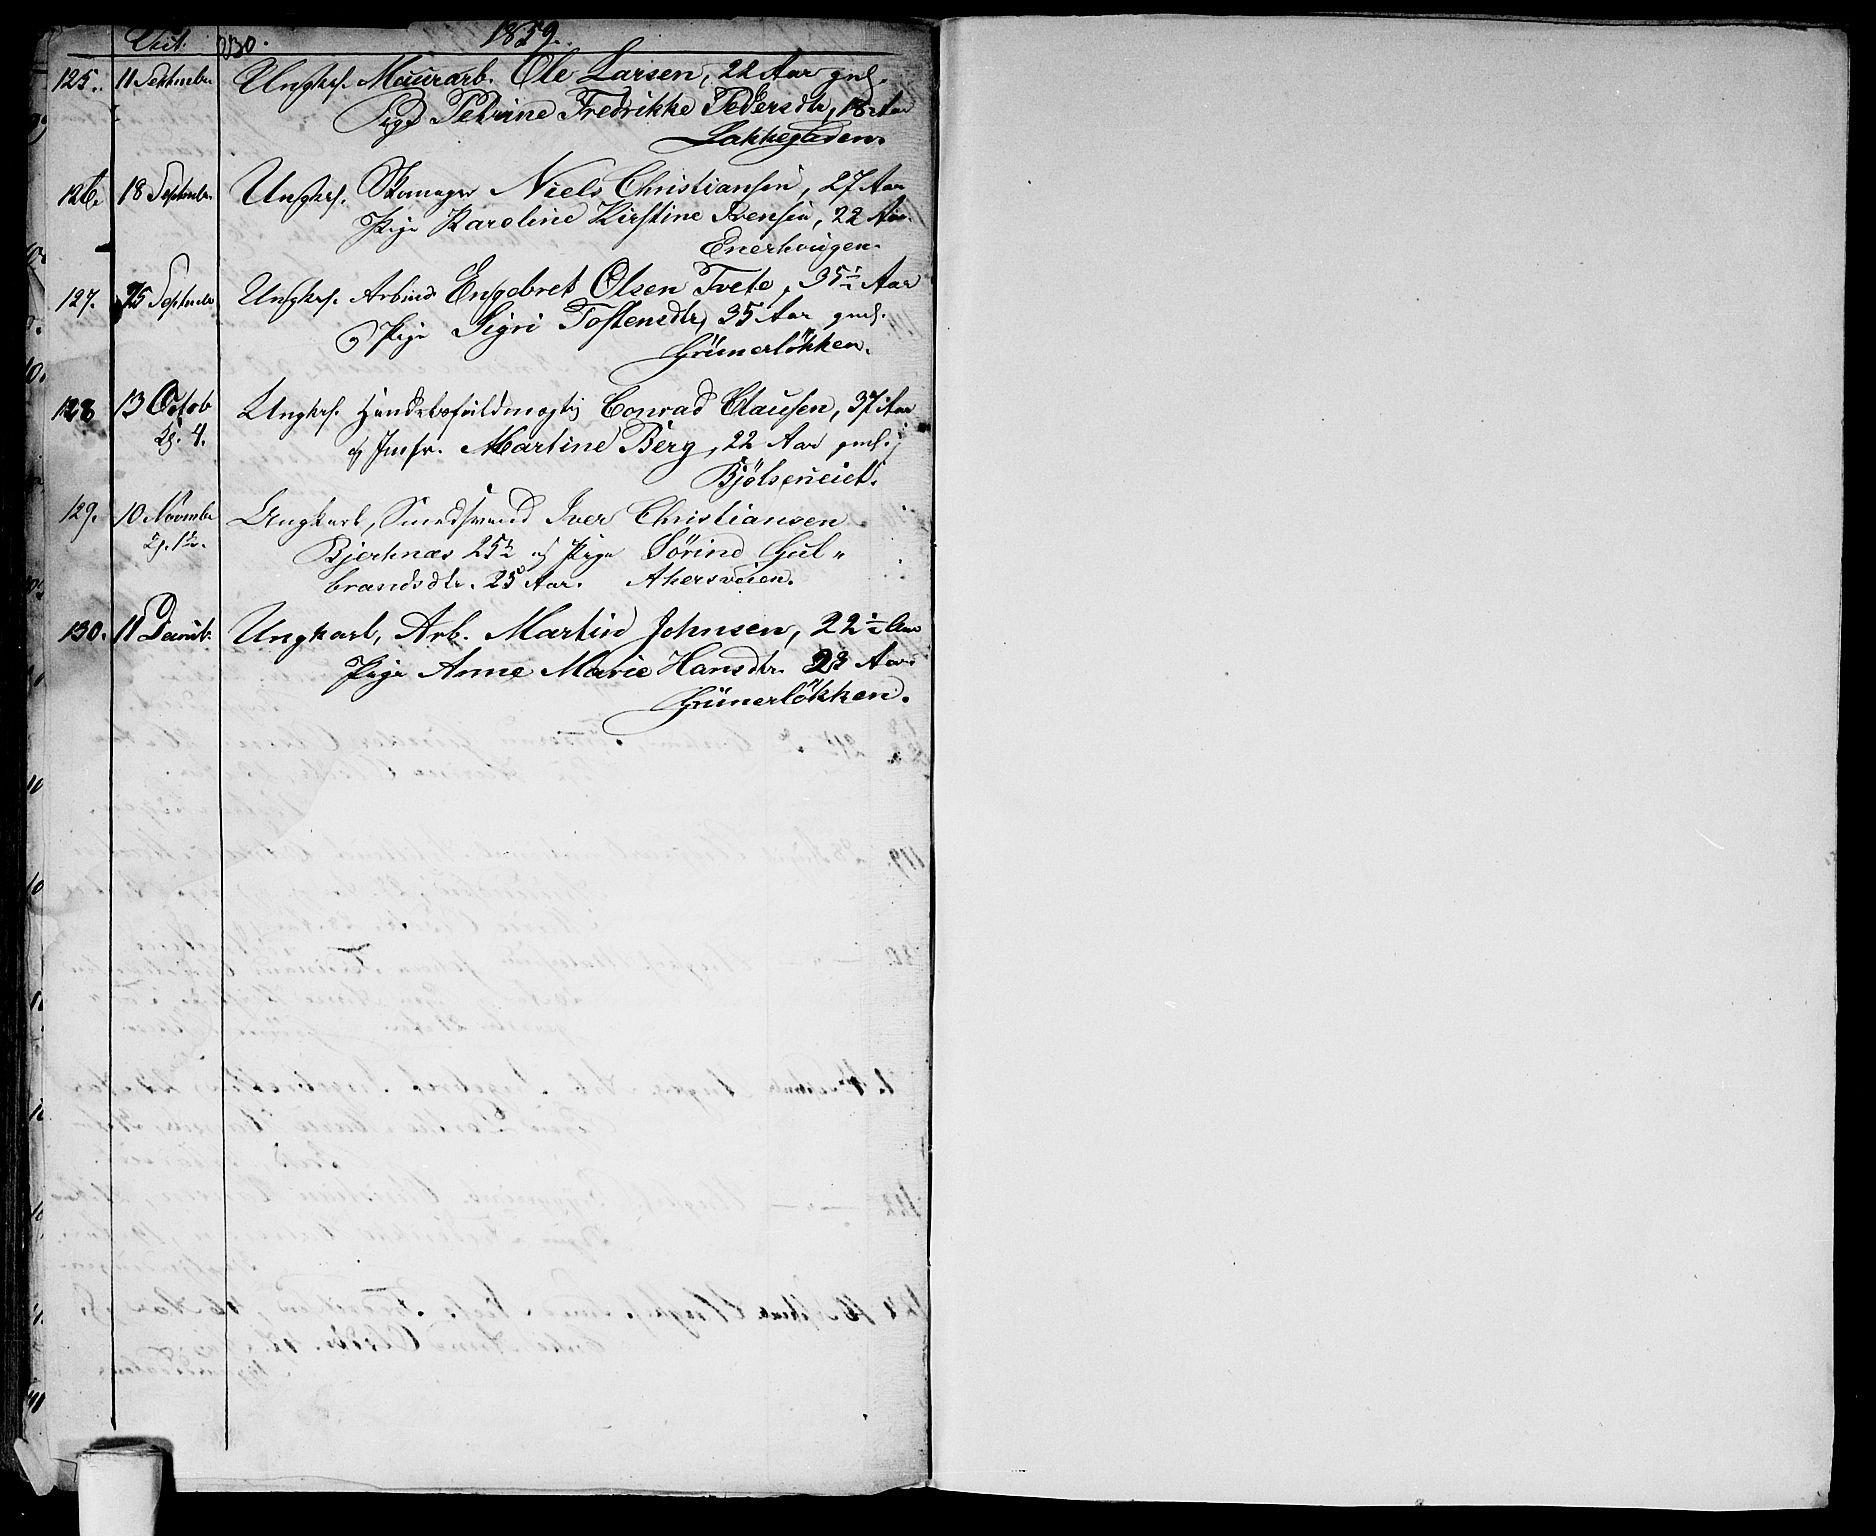 Viet. 130. 1859.
125. 11 September Ungkrl. Muurarb. Ole Larsen, 22 Aar gml.
Pige Petrine Fredrikke Pedersdtr, 18 Aar
Lakkegaden.
126. 18 September Ungkrl. Skomager Niels Christiansen, 27 Aar
Pige Karoline Kirstine Svensen, 22 Aar.
Enerhougen.
127. 25 September Ungkrl. Arbmd Engebret Olsen Tvete, 35½ Aar
og Pige Sigri Tostensdtr, 35 Aar gml.
Grünerløkken.
128 13 Octob Ungkrl. Handelsfuldmægtig Conrad Clausen, 37 Aar
Kl. 4. og Jomfr. Martine Berg, 22 Aar gml.
Bjølseneiet.
129. 10 Novembr Ungkarl, Smedsvend Iver Christiansen
Bjerknæs 25½ og Pige Sørine Gul-
brandsdtr. 25 Aar. Akersveien.
130. 11 Decemb. Ungkarl, Arb. Martin Johnsen, 22½ Aar
Pige Anne Marie Hansdtr. 23 Aar
Grünerløkken.